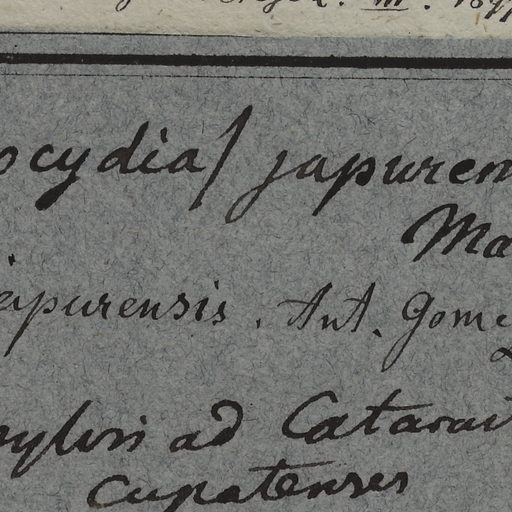 ocydia/ japuren
Ma
japurensis. Ant. Gome
sylvis ad Catarait
Cupatenses